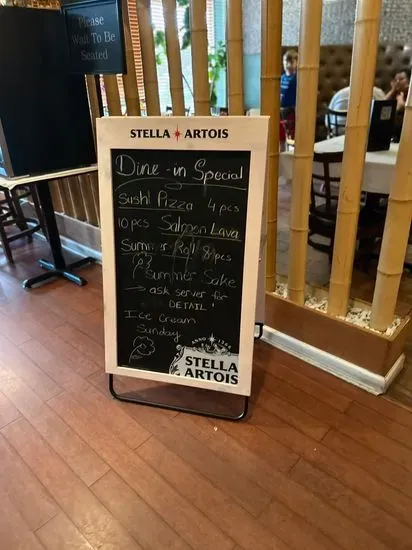 Please
Wait To Be
Seated
STELLA ARTOIS
Dine-in Special
Sushi Pizza 4 pcs
10 pcs Salmon Lava
Summer Roll 8 pcs
Summer Sake
→ ask server for
DETAIL!
Ice Cream
Sunday
ANNO 1366
STELLA
ARTOIS